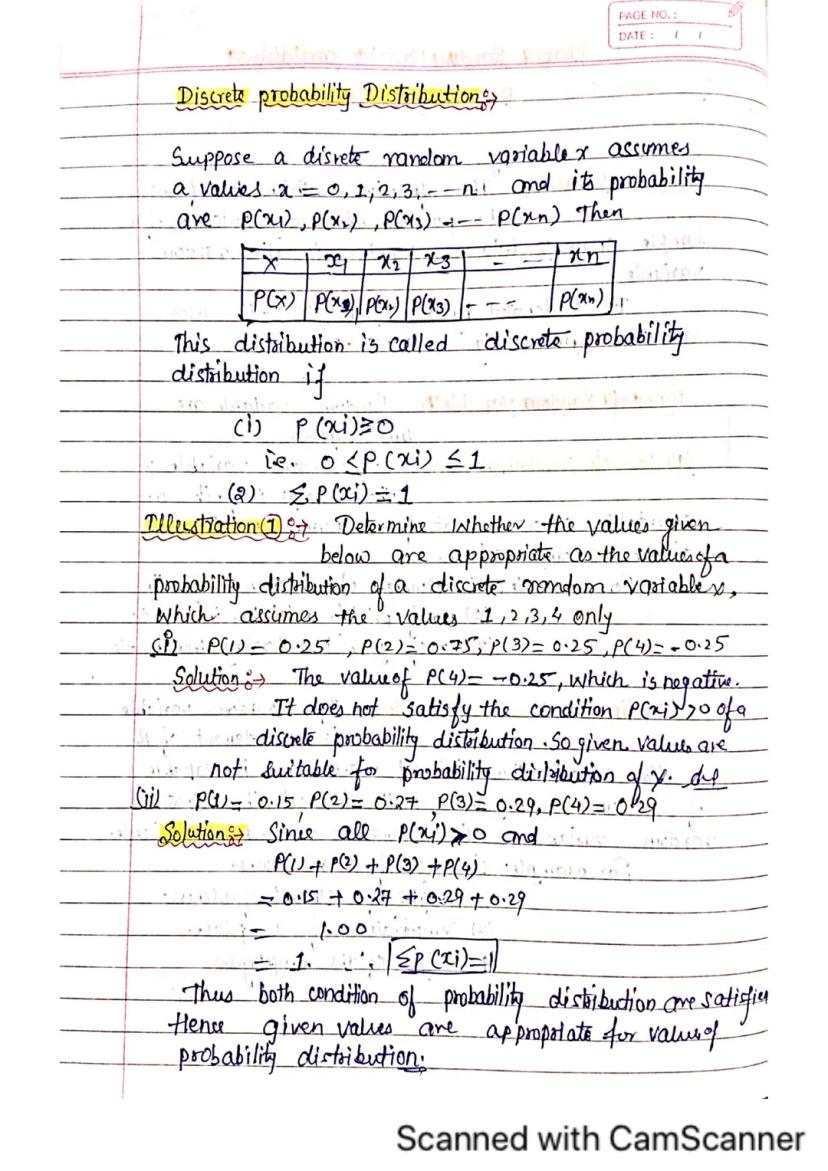 PAGE NO.:
DATE: / /
Discrete probability Distribution:→
Suppose a disrete random variable x assumes
a values x = 0, 1, 2, 3, --- n. and its probability
are P(x1), P(x2), P(x3) ---- P(xn) Then
X x1 x2 x3 - - xn
P(X) P(x1) P(x2) P(x3) - -- P(xn)
This distribution is called discrete probability
distribution if
(i) P(xi)≥0
i.e. 0 ≤ P(xi) ≤ 1
(2) Σ P(xi) = 1
Illustration (1):→ Determine Whether the values given
below are appropriate as the values of a
probability distribution of a discrete random variable x,
Which assumes the values 1, 2, 3, 4 only
(i) P(1) = 0.25, P(2) = 0.75, P(3) = 0.25, P(4) = -0.25
Solution:→ The value of P(4) = -0.25, which is negative.
It does not satisfy the condition P(xi)≥0 of a
discrete probability distribution. So given values are
not suitable for probability distribution of x.
(ii) P(1) = 0.15, P(2) = 0.27 P(3) = 0.29, P(4) = 0.29
Solution:→ Since all P(xi) ≥ 0 and
P(1) + P(2) + P(3) + P(4)
= 0.15 + 0.27 + 0.29 + 0.29
= 1.00
= 1. ∵ ΣP(xi)=1
Thus both condition of probability distribution are satisfies
Hence given values are appropriate for value of
probability distribution.
Scanned with CamScanner